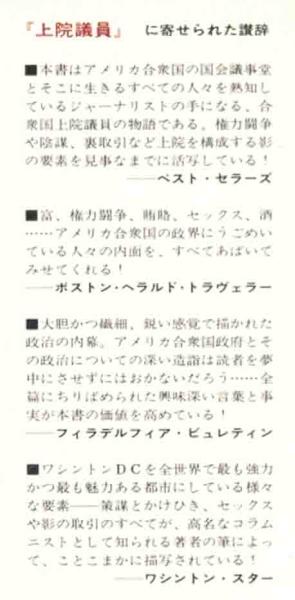 『上院議員』 に寄せられた讃辞
■本書はアメリカ合衆国の国会議事堂
とそこに生きるすべての人々を熟知し
ているジャーナリストの手になる、合
衆国上院議員の物語である。権力闘争
や陰謀、裏取引など上院を構成する影
の要素を見事なまでに活写している！
——ベスト・セラーズ
■富、権力闘争、賄賂、セックス、酒
……アメリカ合衆国の政界にうごめい
ている人々の内面を、すべてあばいて
みせてくれる！
——ボストン・ヘラルド・トラヴェラー
■大胆かつ繊細、鋭い感覚で描かれた
政治の内幕。アメリカ合衆国政府とそ
の政治についての深い造詣は読者を夢
中にさせずにはおかないだろう……全
篇にちりばめられた興味深い言葉と事
実が本書の価値を高めている！
——フィラデルフィア・ビュレティン
■ワシントンDCを全世界で最も強力
かつ最も魅力ある都市にしている様々
な要素——策謀とかけひき、セックス
や影の取引のすべてが、高名なコラム
ニストとして知られる著者の筆によっ
て、ことこまかに描写されている！
——ワシントン・スター